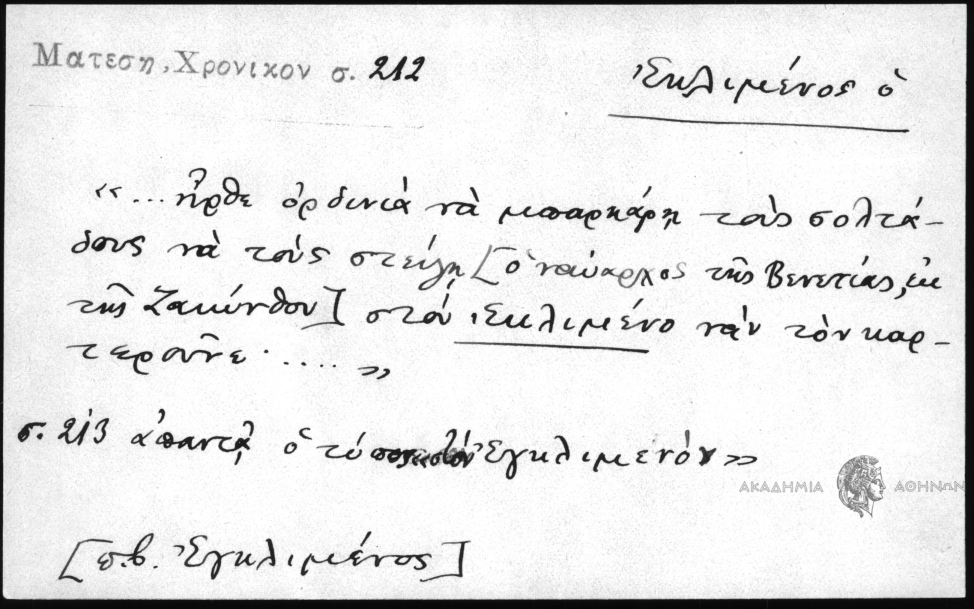 Ματεση, Χρονικον σ. 212
Ἐκλιμένος ὁ
«... ἦρθε ὀρδινιά νὰ μπαρκάρῃ τοὺς σολτά-
δους νὰ τοὺς στείλῃ [ὁ ναύαρχος τῆς Βενετίας, ἐκ
τῆς Ζακύνθου] στόν Ἐκλιμένο νὰν τὸν καρ-
τεροῦνε .... »
σ. 213 ἀπαντᾷ ὁ τύπος «στὸν Ἐγκλιμενόν»
ΑΚΑΔΗΜΙΑ ΑΘΗΝΩΝ
[π.β. Ἐγκλιμένος]